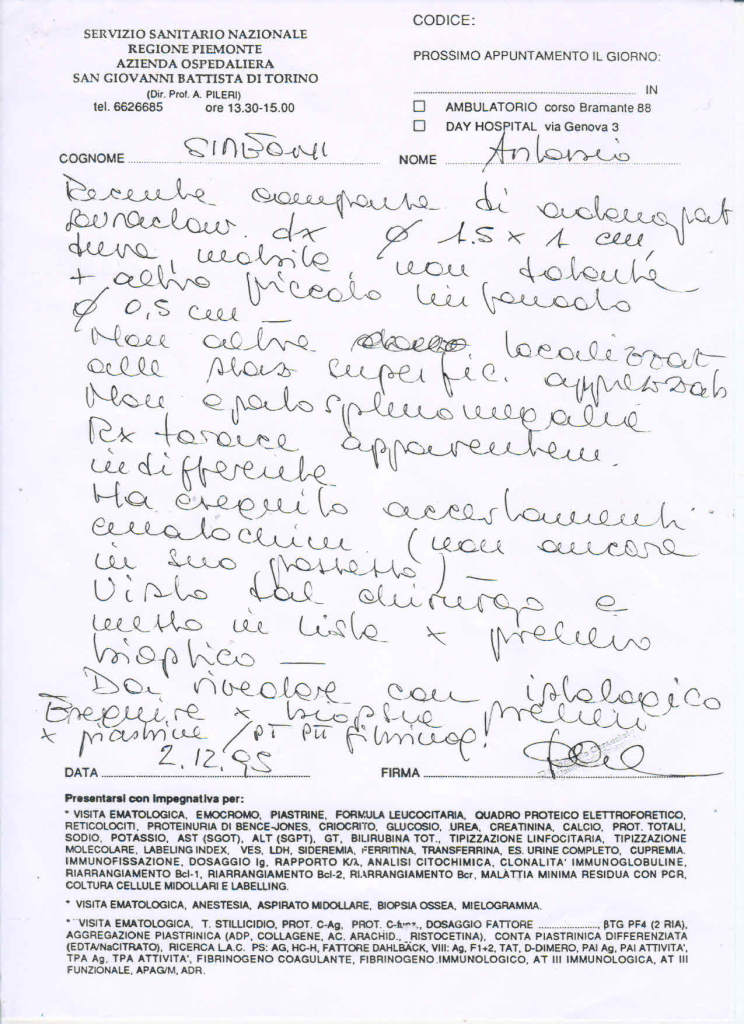 SERVIZIO SANITARIO NAZIONALE
REGIONE PIEMONTE
AZIENDA OSPEDALIERA
SAN GIOVANNI BATTISTA DI TORINO
(Dir. Prof. A. PILERI)
tel. 6626685 ore 13.30-15.00
CODICE:
PROSSIMO APPUNTAMENTO IL GIORNO:
IN
☐ AMBULATORIO corso Bramante 88
☐ DAY HOSPITAL via Genova 3
COGNOME NOME Antonio
Recente comparsa di adenopat
sovraclav. dx ø 1.5 x 1 cm,
dura, mobile, non dolente
+ altro piccolo linfonodo
ø 0,5 cm —
Non altre localizzat
alle staz superfic. apprezzab
Non epatosplenomegalie
Rx torace apparentem.
indifferente
Ha eseguito accertamenti
ematochim (non ancora
in suo possesso) —
Visto dal chirurgo e
messo in lista x prelievo
bioptico —
Da rivedere con istologico
Eseguire x biopsia prelievi
x piastrine / PT PTT fibrinog.
DATA 2.12.95 FIRMA
Presentarsi con Impegnativa per:
* VISITA EMATOLOGICA, EMOCROMO, PIASTRINE, FORMULA LEUCOCITARIA, QUADRO PROTEICO ELETTROFORETICO,
RETICOLOCITI, PROTEINURIA DI BENCE-JONES, CRIOCRITO, GLUCOSIO, UREA, CREATININA, CALCIO, PROT. TOTALI,
SODIO, POTASSIO, AST (SGOT), ALT (SGPT), GT, BILIRUBINA TOT., TIPIZZAZIONE LINFOCITARIA, TIPIZZAZIONE
MOLECOLARE, LABELING INDEX, VES, LDH, SIDEREMIA, FERRITINA, TRANSFERRINA, ES. URINE COMPLETO, CUPREMIA,
IMMUNOFISSAZIONE, DOSAGGIO Ig, RAPPORTO K/λ, ANALISI CITOCHIMICA, CLONALITA' IMMUNOGLOBULINE,
RIARRANGIAMENTO Bcl-1, RIARRANGIAMENTO Bcl-2, RIARRANGIAMENTO Bcr, MALATTIA MINIMA RESIDUA CON PCR,
COLTURA CELLULE MIDOLLARI E LABELLING.
* VISITA EMATOLOGICA, ANESTESIA, ASPIRATO MIDOLLARE, BIOPSIA OSSEA, MIELOGRAMMA.
* VISITA EMATOLOGICA, T. STILLICIDIO, PROT. C-Ag, PROT. DOSAGGIO FATTORE ...................., βTG PF4 (2 RIA),
AGGREGAZIONE PIASTRINICA (ADP, COLLAGENE, AC. ARACHID., RISTOCETINA), CONTA PIASTRINICA DIFFERENZIATA
(EDTA/NaCITRATO), RICERCA L.A.C. PS: AG, HC-H, FATTORE DAHLBÄCK, VIII: Ag, F1+2, TAT, D-DIMERO, PAI Ag, PAI ATTIVITA',
TPA Ag, TPA ATTIVITA', FIBRINOGENO COAGULANTE, FIBRINOGENO IMMUNOLOGICO, AT III IMMUNOLOGICA, AT III
FUNZIONALE, APAG/M, ADR.